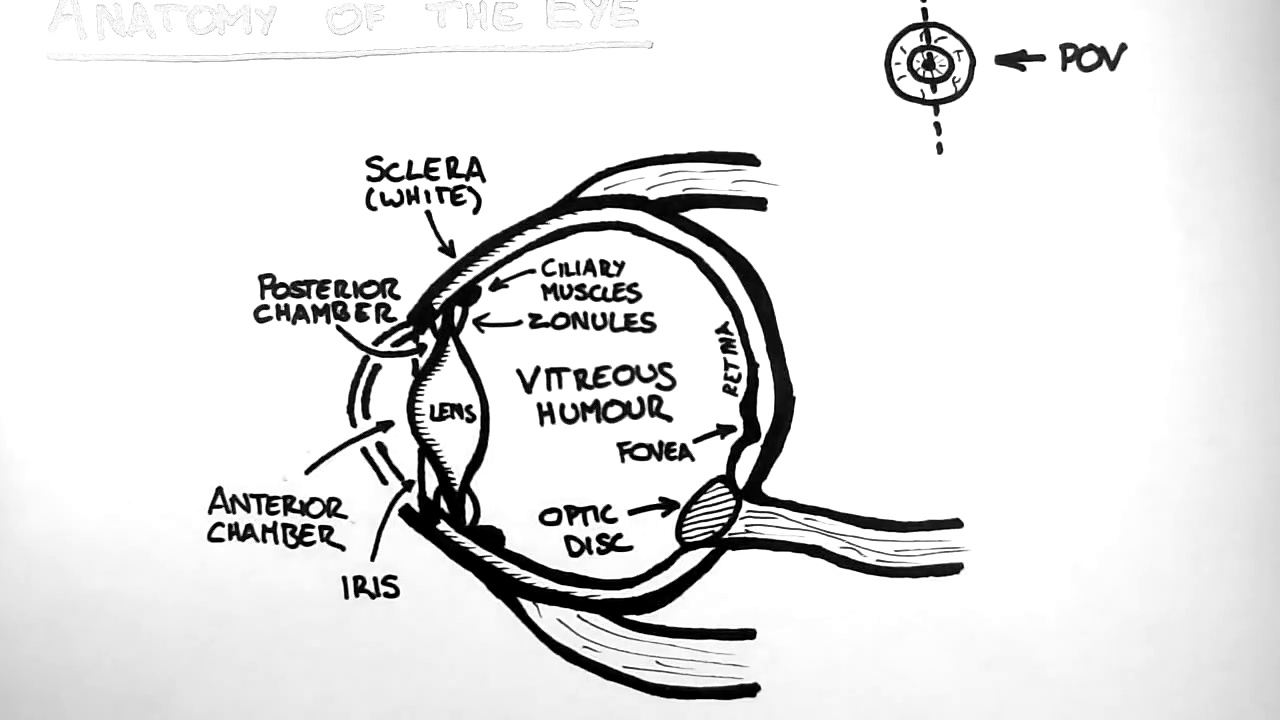 ANATOMY OF THE EYE
POV
SCLERA
(WHITE)
POSTERIOR
CHAMBER
CILIARY
MUSCLES
ZONULES
VITREOUS
HUMOUR
RETINA
LENS
FOVEA
ANTERIOR
CHAMBER
OPTIC
DISC
IRIS